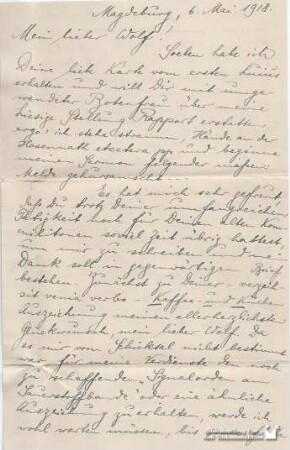 Magdeburg, 6. Mai 1918.
Mein lieber Wolf!
Soeben habe ich
Deine liebe Karte vom ersten huius
erhalten und will Dir mit umge-
wandter Botenfrau über meine
hiesige Stellung Rapport erstatten,
ergo: ich stehe stramm, Hände an der
Hosennaht etcetera pp und beginne
meinen Sermon folgender
Melde gehorsamst:
Es hat mich sehr gefreut,
daß du trotz Deiner umfangreichen
Tätigkeit noch für Deinen alten Kom-
militonen soviel Zeit übrig hattest,
um mir zu schreiben und
Dank soll in gegenwärtigem Brief
bestehen. Zunächst zu Deiner - verzeih
sit venia verbo - Kaffee- und Kuchen
Auszeichnung meinen allerherzlichsten
Glückwunsch, mein lieber Wolf. Da
es mir vom Schicksal nicht bestimmt
war für meine Verdienste den noch
zu schaffenden "Signalorden am
Sauerstoffbande" oder eine ähnliche
Auszeichnung zu erhalten, werde ich
wohl warten müssen, bis